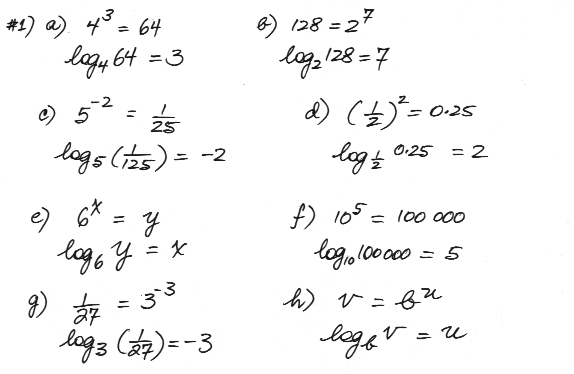 #1) a) 4^3 = 64
log_4 64 = 3
b) 128 = 2^7
log_2 128 = 7
c) 5^-2 = 1/25
log_5 (1/125) = -2
d) (1/2)^2 = 0.25
log_1/2 0.25 = 2
e) 6^x = y
log_6 y = x
f) 10^5 = 100 000
log_10 100 000 = 5
g) 1/27 = 3^-3
log_3 (1/27) = -3
h) v = b^u
log_b v = u